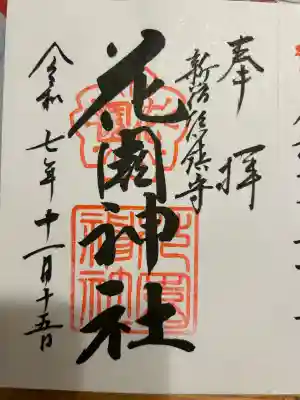 奉拝
新宿総鎮守
花園神社
令和七年十一月十五日